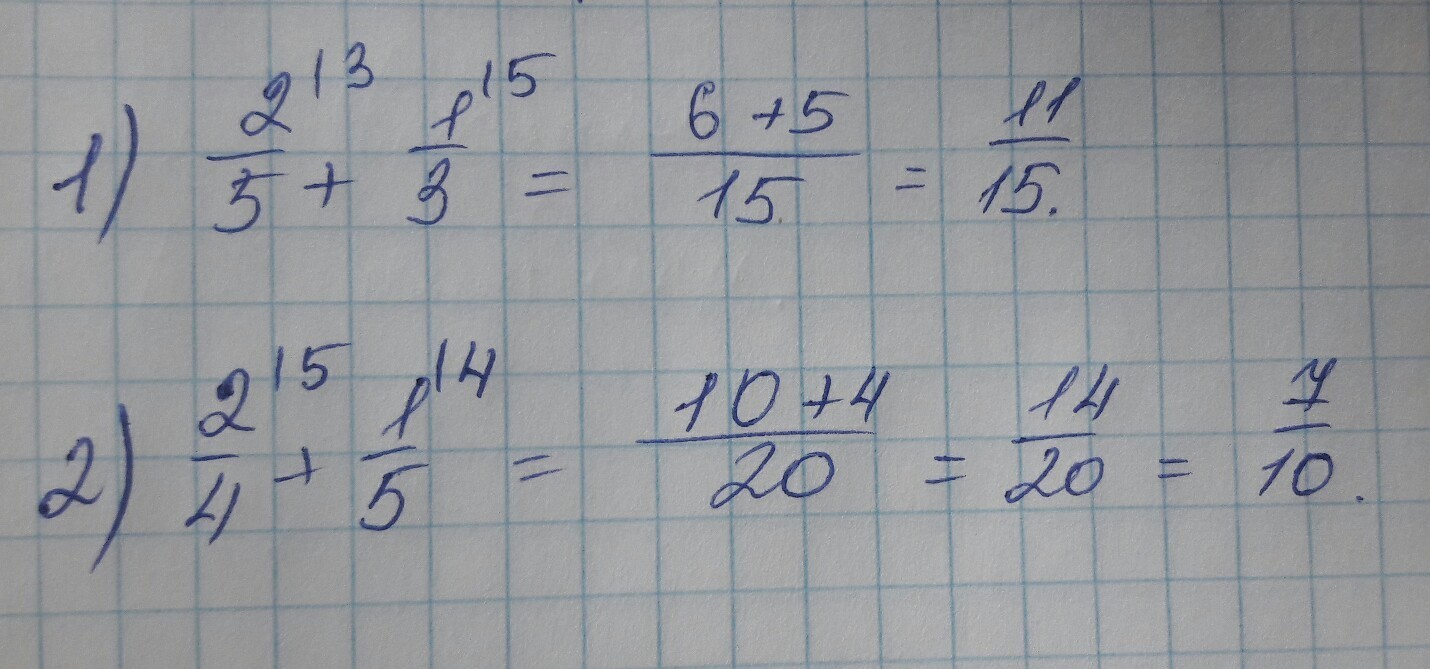 1) 2/5 |3 + 1/3 |5 = 6+5/15 = 11/15.
2) 2/4 |5 + 1/5 |4 = 10+4/20 = 14/20 = 7/10.